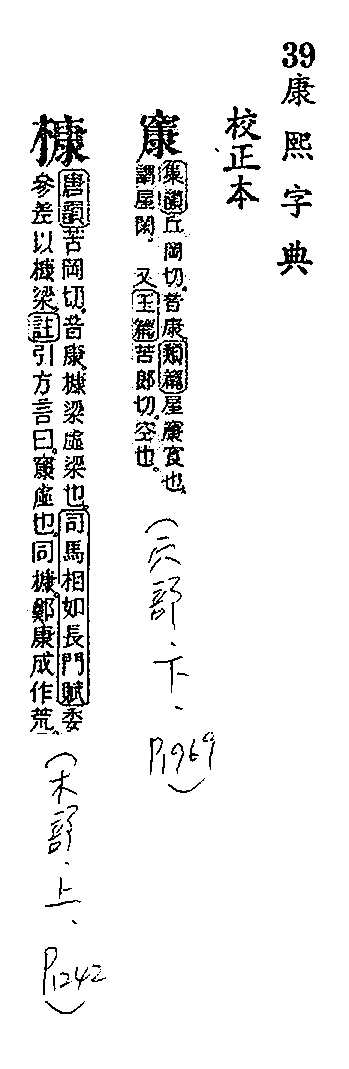 39康熙字典
校正本
㝩
集韻丘岡切。音康。類篇屋㝩㝗也。
謂屋閑。又玉篇苦郎切。空也。
(穴部.下.P.1969)
槺
唐韻苦岡切。音康。槺梁虛梁也。司馬相如長門賦委
參差以槺梁。註引方言曰。㝩虛也。同槺。鄭康成作荒。
(木部.上.P.1242)